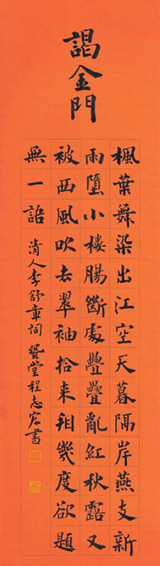 謁金門
楓葉舞染出江空天暮隔岸燕支新
雨墮小樓腸斷處疊疊亂紅秋露又
被西風吹去翠袖拾來幾度欲題
無一語 清人李舒章詞 堂程志宏書